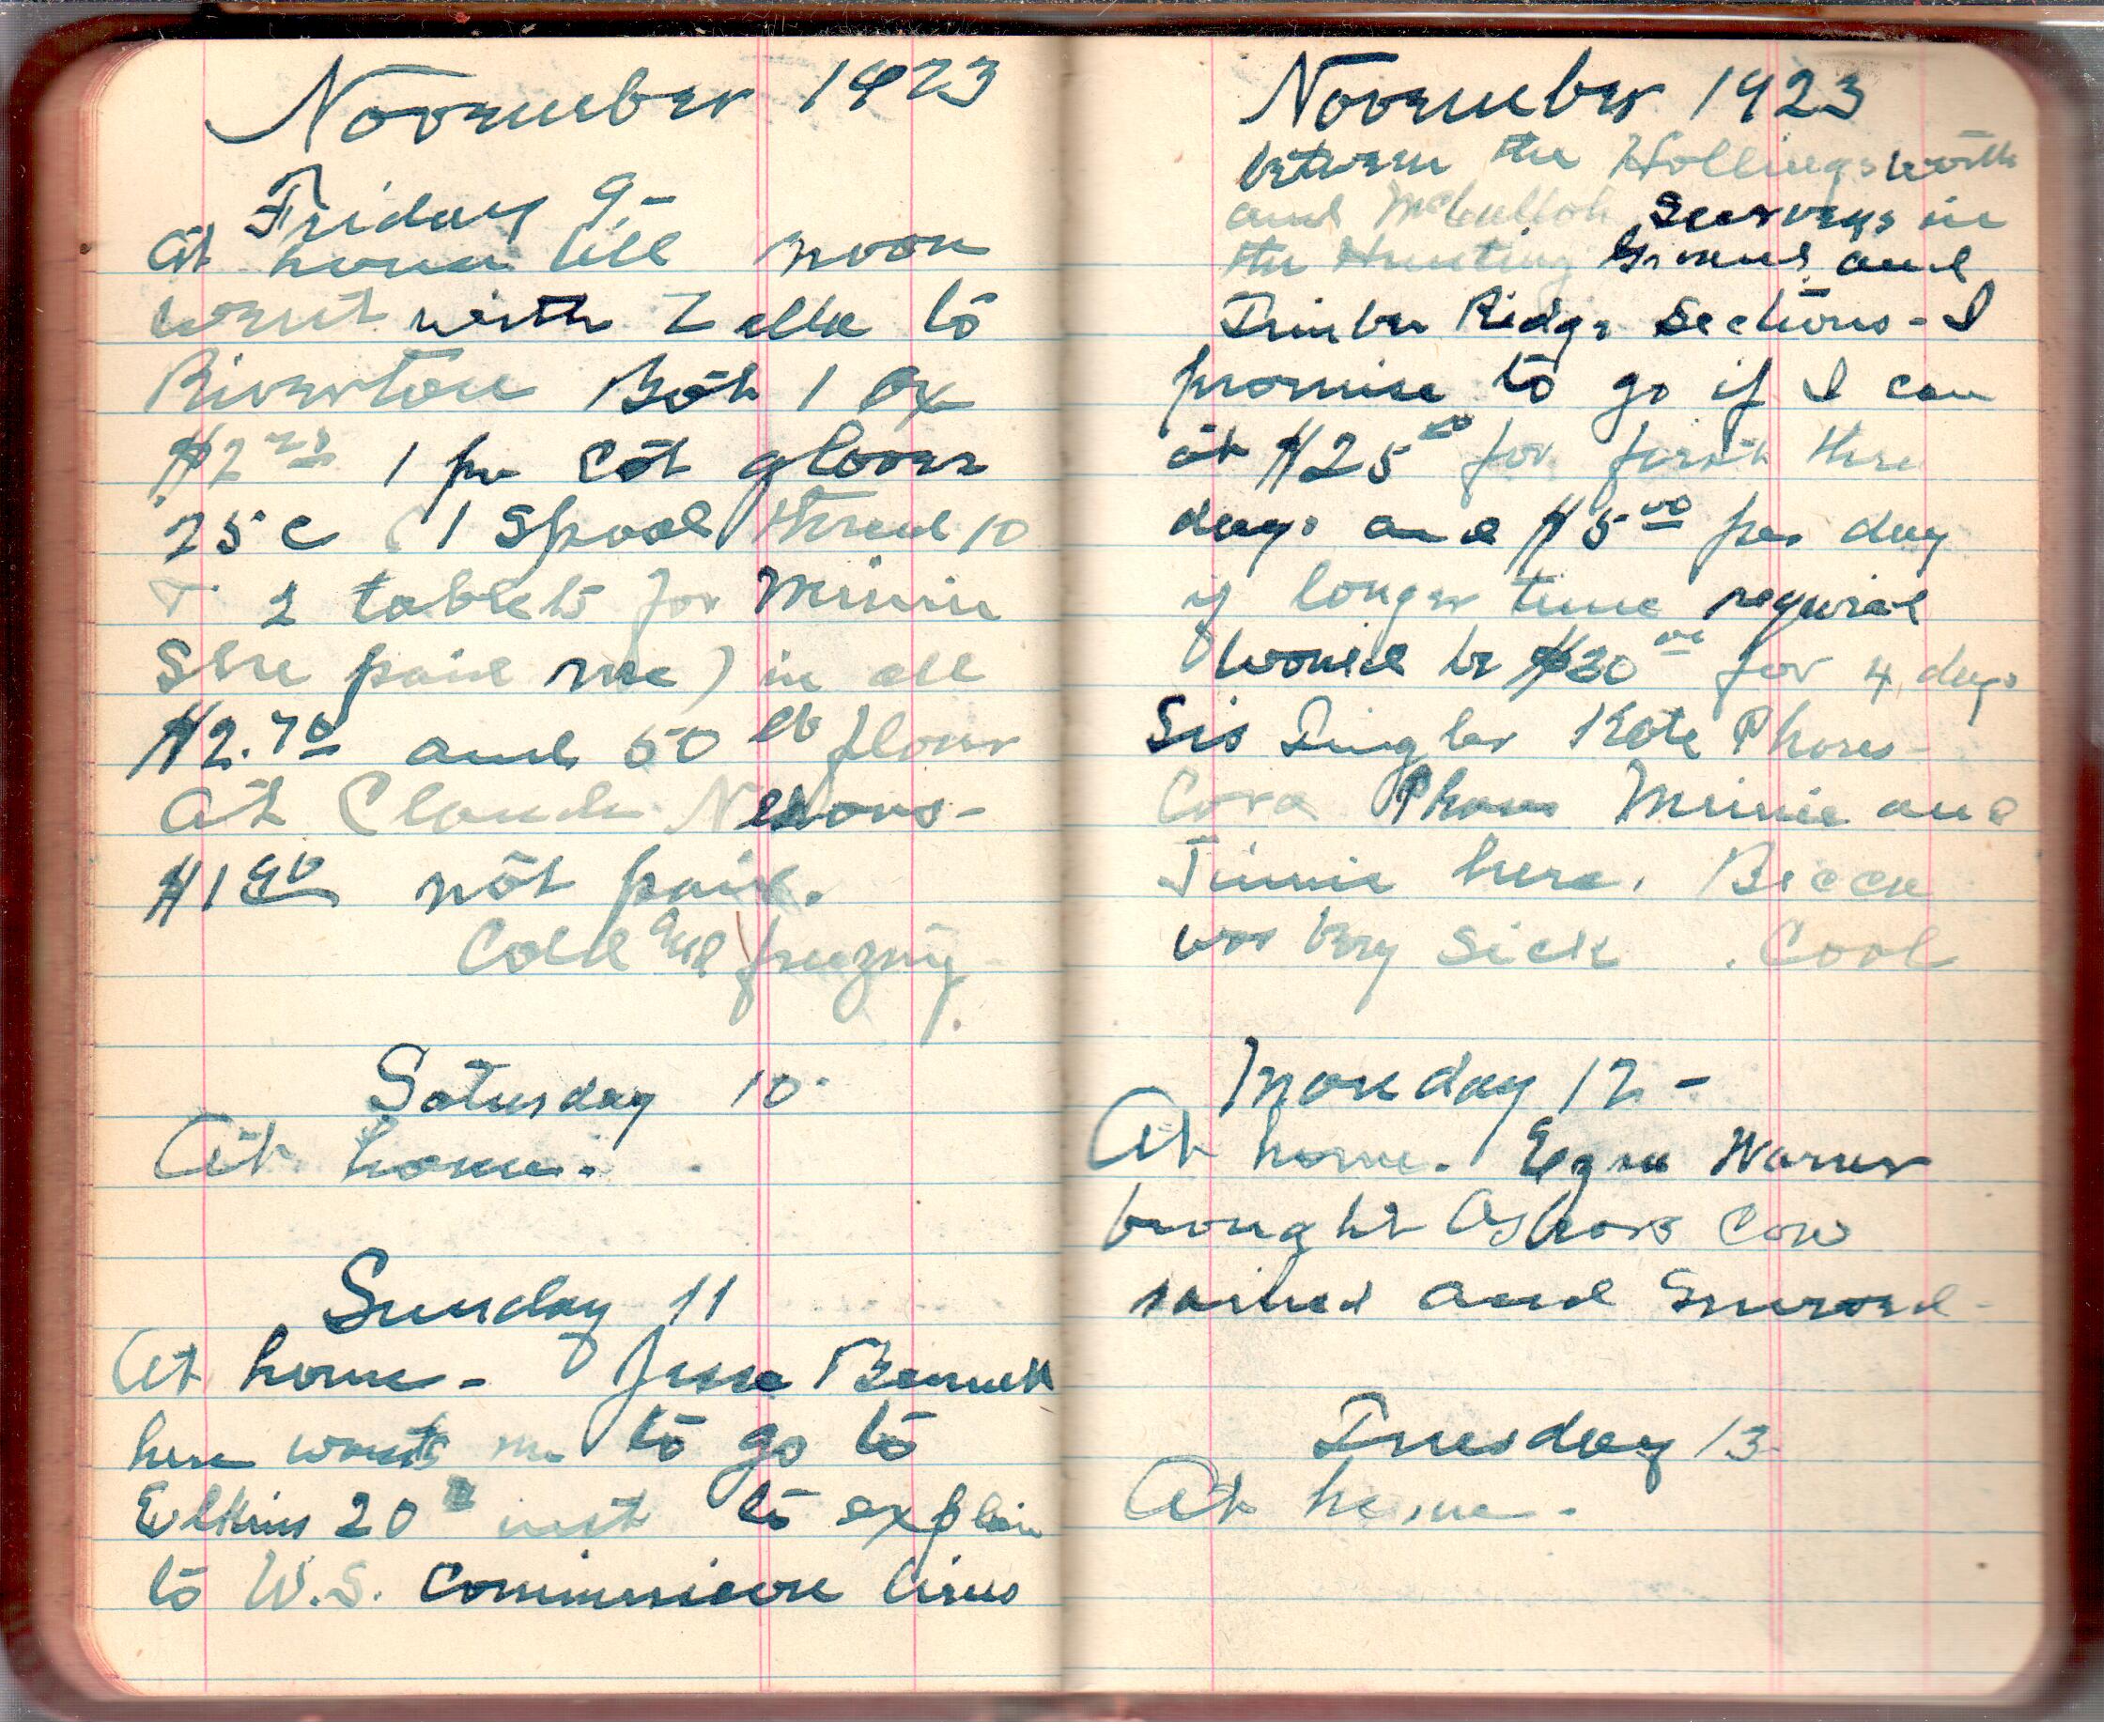 November 1923
Friday 9-
At home till noon
went with Zella to
Riverton Bot 1 ax
$2 25 1 pr cot gloves
25 c ( 1 Spool thread 10
& 2 tablets for Minnie
She paid me) in all
$2.70 and 50 lb flour
at Claude Nelsons-
$1 90 not paid.
Cold and freezing.
Saturday 10
At home.
Sunday 11
At home- Jesse Bennett
here wants me to go to
Elkins 20 inst to explain
to W.S. Commissione lines
November 1923
between the Hollingsworth
and McCulloh Surveys in
the Hunting Ground and
Timber Ridge Sections - I
promise to go if I can
at $25 00 for first three
days and $5 00 per day
if longer time required
Would be $30 00 for 4 days
Sis Kate Phares-
Cora Phares Minnie and
Jimmie here.
was very sick. Cool
Monday 12-
At home. Ezra Warner
brought cow
rained and Snowed-
Tuesday 13
At home.